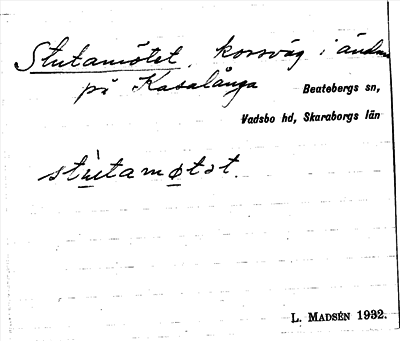 Stutamötet, korsväg i ändan
på Kasalånga
Beatebergs sn,
Vadsbo hd, Skaraborgs län
stùtamøtət.
L. MADSÉN 1932.